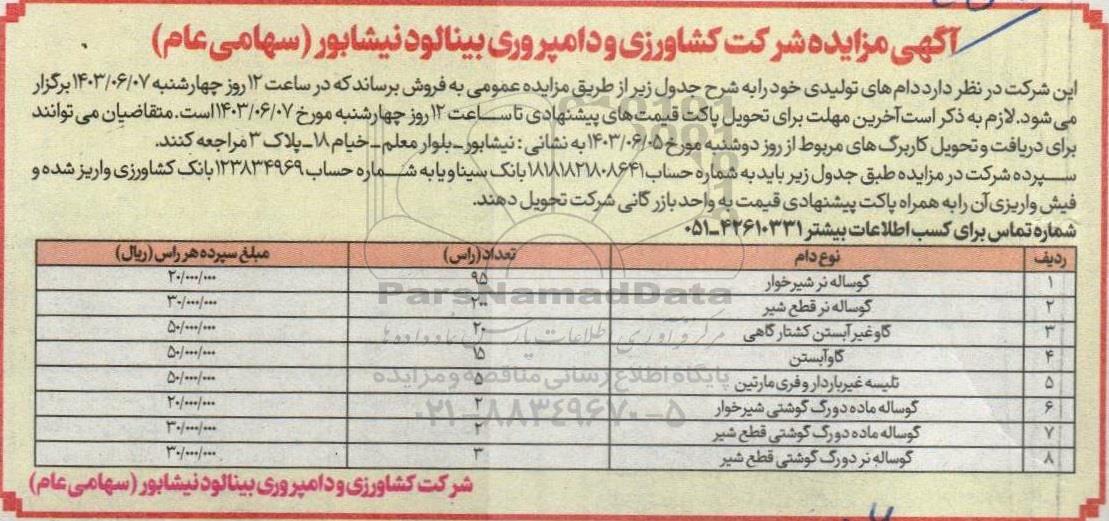 آگهی مزایده شرکت کشاورزی و دامپروری بینالود نیشابور (سهامی عام)
این شرکت در نظر دارد دام های تولیدی خود را به شرح جدول زیر از طریق مزایده عمومی به فروش برساند که در ساعت ۱۲ روز چهارشنبه ۱۴۰۳/۰۶/۰۷ برگزار
می شود. لازم به ذکر است آخرین مهلت برای تحویل پاکت قیمت های پیشنهادی تا ساعت ۱۲ روز چهارشنبه مورخ ۱۴۰۳/۰۶/۰۷ است. متقاضیان می توانند
برای دریافت و تحویل کاربرگ های مربوط از روز دوشنبه مورخ ۱۴۰۳/۰۶/۰۵ به نشانی : نیشابور_بلوار معلم_خیام ۱۸_پلاک ۳ مراجعه کنند.
سپرده شرکت در مزایده طبق جدول زیر باید به شماره حساب ۱۸۱۸۱۸۲۱۸۰۸۶۴۱ بانک سینا و یا به شماره حساب ۱۲۳۸۳۴۹۶۹ بانک کشاورزی واریز شده و
فیش واریزی آن را به همراه پاکت پیشنهادی قیمت به واحد بازرگانی شرکت تحویل دهند.
شماره تماس برای کسب اطلاعات بیشتر ۴۲۶۱۰۳۳۱_۰۵۱
ردیف نوع دام تعداد (راس) مبلغ سپرده هر راس (ریال)
۱ گوساله نر شیرخوار ۹۵ ۲۰/۰۰۰/۰۰۰
۲ گوساله نر قطع شیر ۲۰۰ ۳۰/۰۰۰/۰۰۰
۳ گاو غیر آبستن کشتارگاهی ۲۰ ۵۰/۰۰۰/۰۰۰
۴ گاو آبستن ۱۵ ۵۰/۰۰۰/۰۰۰
۵ تلیسه غیرباردار و فری مارتین ۵ ۵۰/۰۰۰/۰۰۰
۶ گوساله ماده دورگ گوشتی شیرخوار ۲ ۲۰/۰۰۰/۰۰۰
۷ گوساله ماده دورگ گوشتی قطع شیر ۲ ۳۰/۰۰۰/۰۰۰
۸ گوساله نر دورگ گوشتی قطع شیر ۳ ۳۰/۰۰۰/۰۰۰
شرکت کشاورزی و دامپروری بینالود نیشابور (سهامی عام)
ParsNamadData
مرکز فرآوری اطلاعات پارس نماد داده ها
پایگاه اطلاع رسانی مناقصه و مزایده
۰۲۱-۸۸۳۴۹۶۷۰-۵